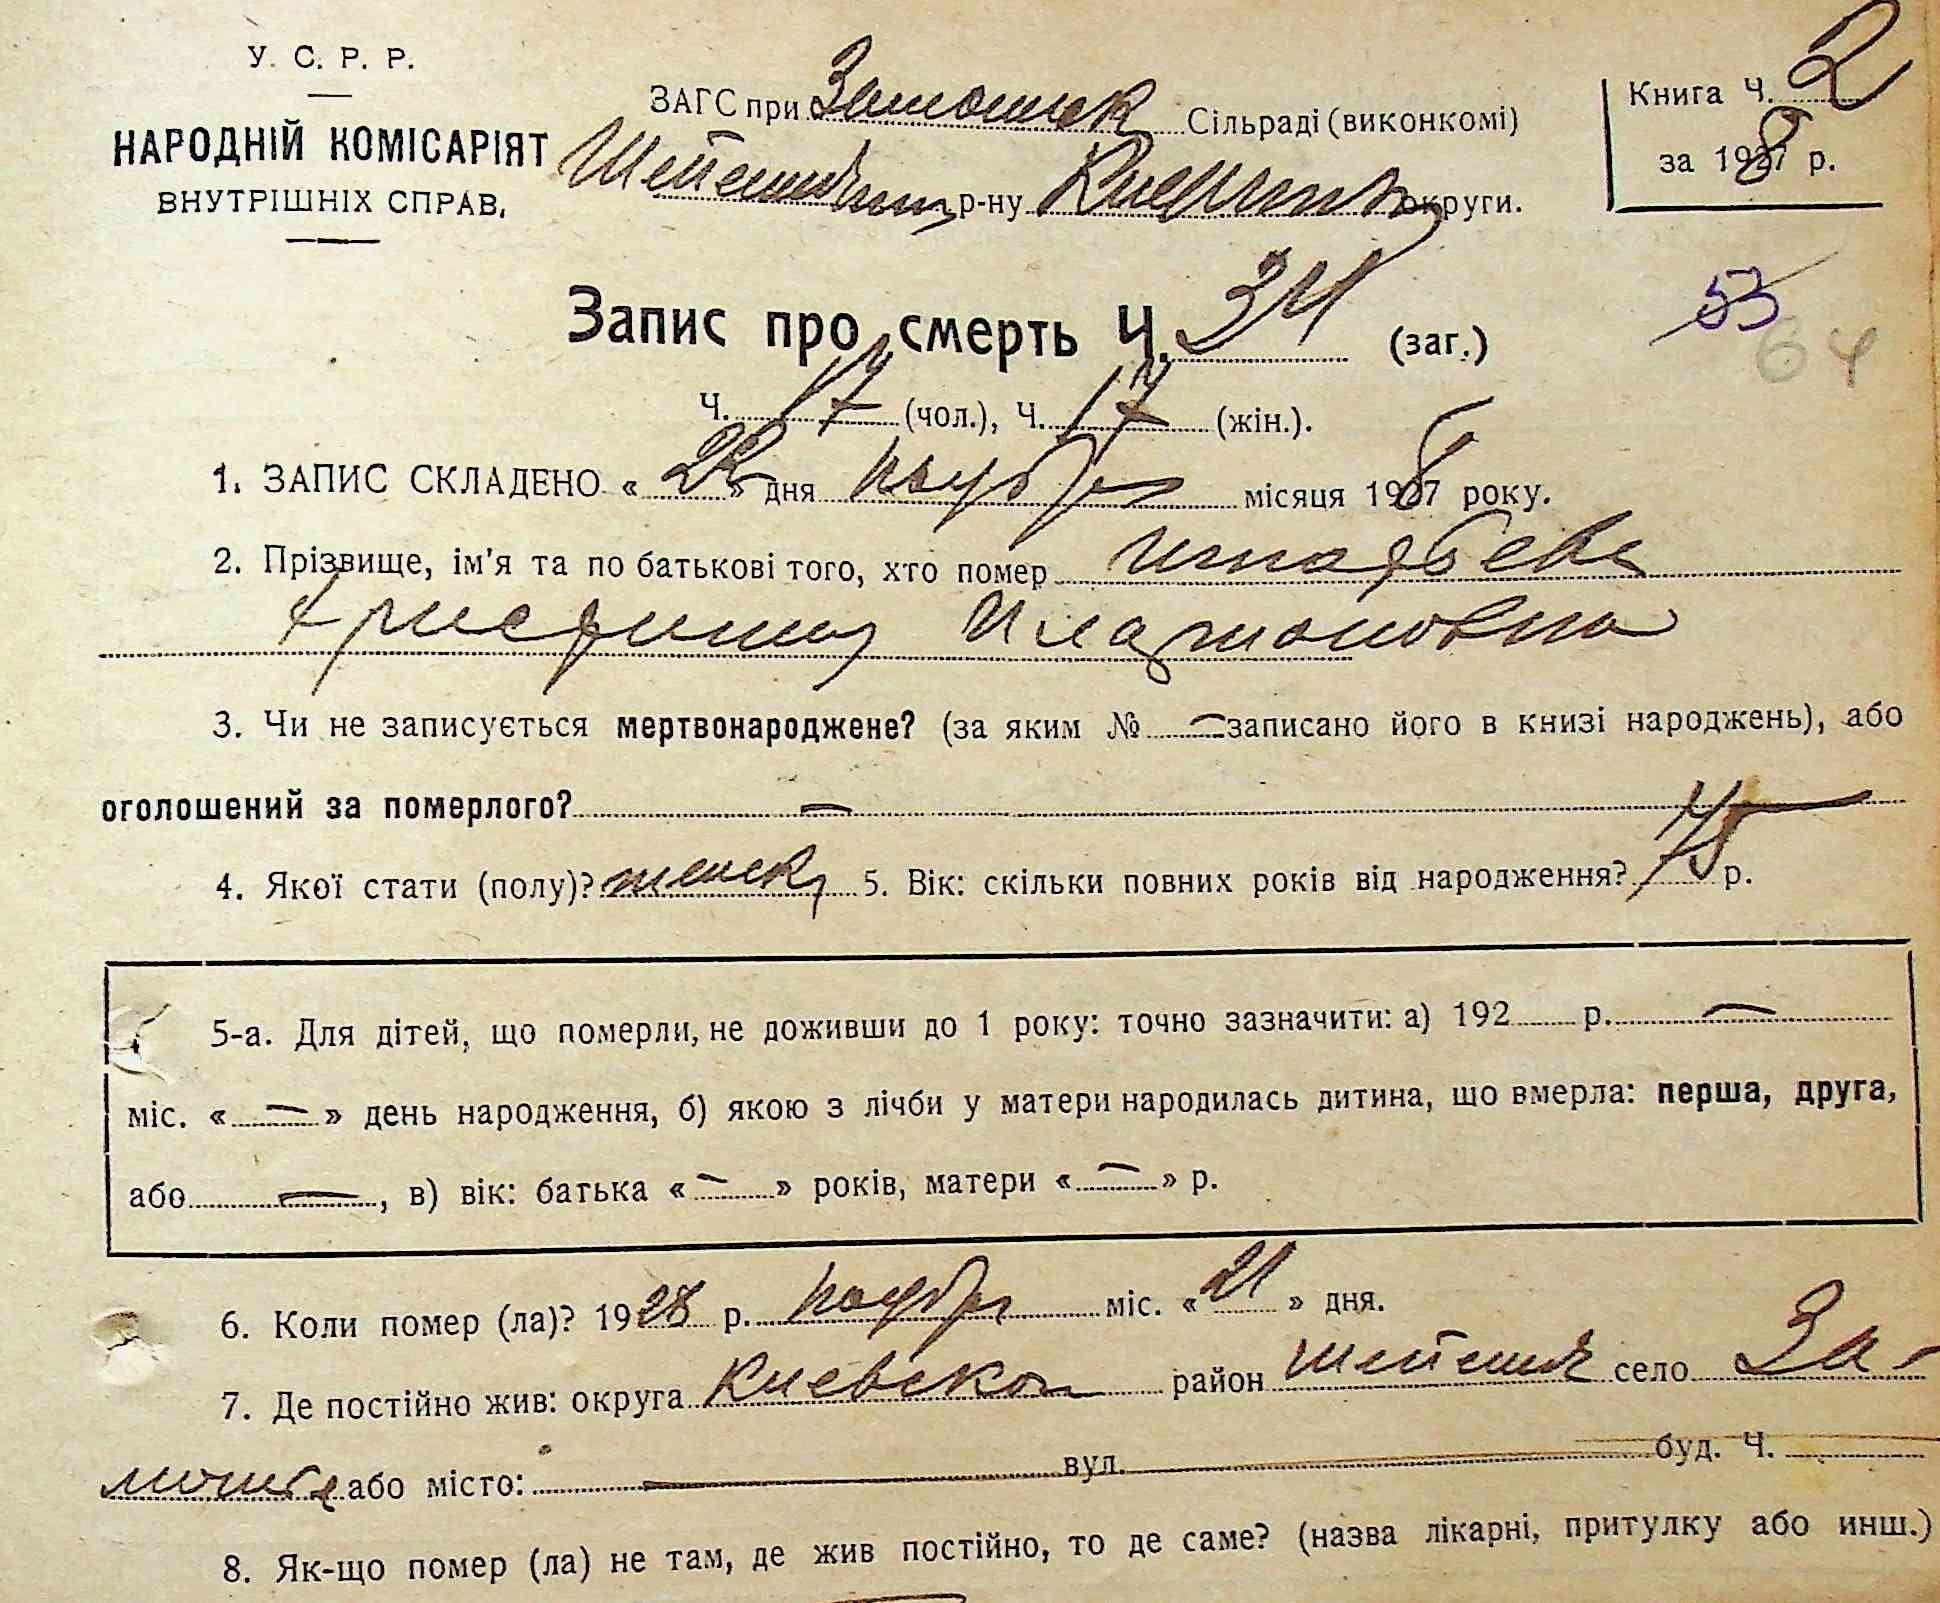 У. С. Р. Р.
НАРОДНІЙ КОМІСАРІЯТ
ВНУТРІШНІХ СПРАВ,
ЗАГС при Замошск Сільраді (виконкомі)
р-ну округи.
Книга Ч. 2
за 1928 р.
53
64
Запис про смерть Ч. 34 (заг.)
Ч. 17 (чол.), Ч. 17 (жін.).
1. ЗАПИС СКЛАДЕНО « 22 » дня ноября місяця 1928 року.
2. Прізвище, ім'я та по батькові того, хто помер
Христина Платоновна
3. Чи не записується мертвонароджене? (за яким № — записано його в книзі народжень), або
оголошений за померлого? —
4. Якої стати (полу)? женск 5. Вік: скільки повних років від народження? 75 р.
5-а. Для дітей, що померли, не доживши до 1 року: точно зазначити: а) 192 р. —
міс. « — » день народження, б) якою з лічби у матери народилась дитина, що вмерла: перша, друга,
або — , в) вік: батька « — » років, матери « — » р.
6. Коли помер (ла)? 1928 р. ноября міс. « 21 » дня.
7. Де постійно жив: округа Киевской район село За-
мошье або місто: — вул. буд. Ч.
8. Як-що помер (ла) не там, де жив постійно, то де саме? (назва лікарні, притулку або инш.)